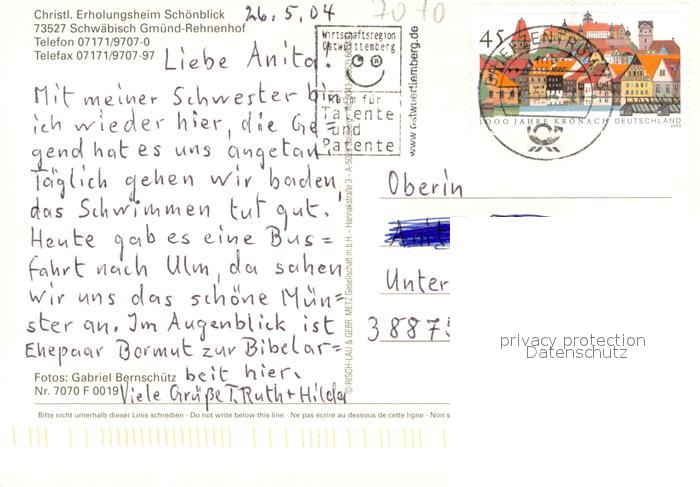 Christl. Erholungsheim Schönblick
73527 Schwäbisch Gmünd-Rehnenhof
Telefon 07171/9707-0
Telefax 07171/9707-97
26.5.04
7070
Liebe Anita!
Mit meiner Schwester bin
ich wieder hier, die Ge=
gend hat es uns angetan.
Täglich gehen wir baden,
das Schwimmen tut gut.
Heute gab es eine Bus=
fahrt nach Ulm, da sahen
wir uns das schöne Mün=
ster an. Im Augenblick ist
Ehepaar Bormut zur Bibelar=
beit hier.
Viele Grüße T. Ruth + Hilda
Fotos: Gabriel Bernschütz
Nr. 7070 F 0019
Bitte nicht unterhalb dieser Linie schreiben - Do not write below this line - Ne pas écrire au dessous de cette ligne - Non s
Wirtschaftsregion
Ostwürttemberg
Raum für
Talente
und
Patente
www.ostwuerttemberg.de
© RISCH-LAU & GEBR. METZ Gesellschaft m.b.H. - Hannakstraße 3 - A-5023
45
BRIEFZENTRUM
1000 JAHRE KRONACH DEUTSCHLAND
Oberin
Unter
38875
privacy protection
Datenschutz